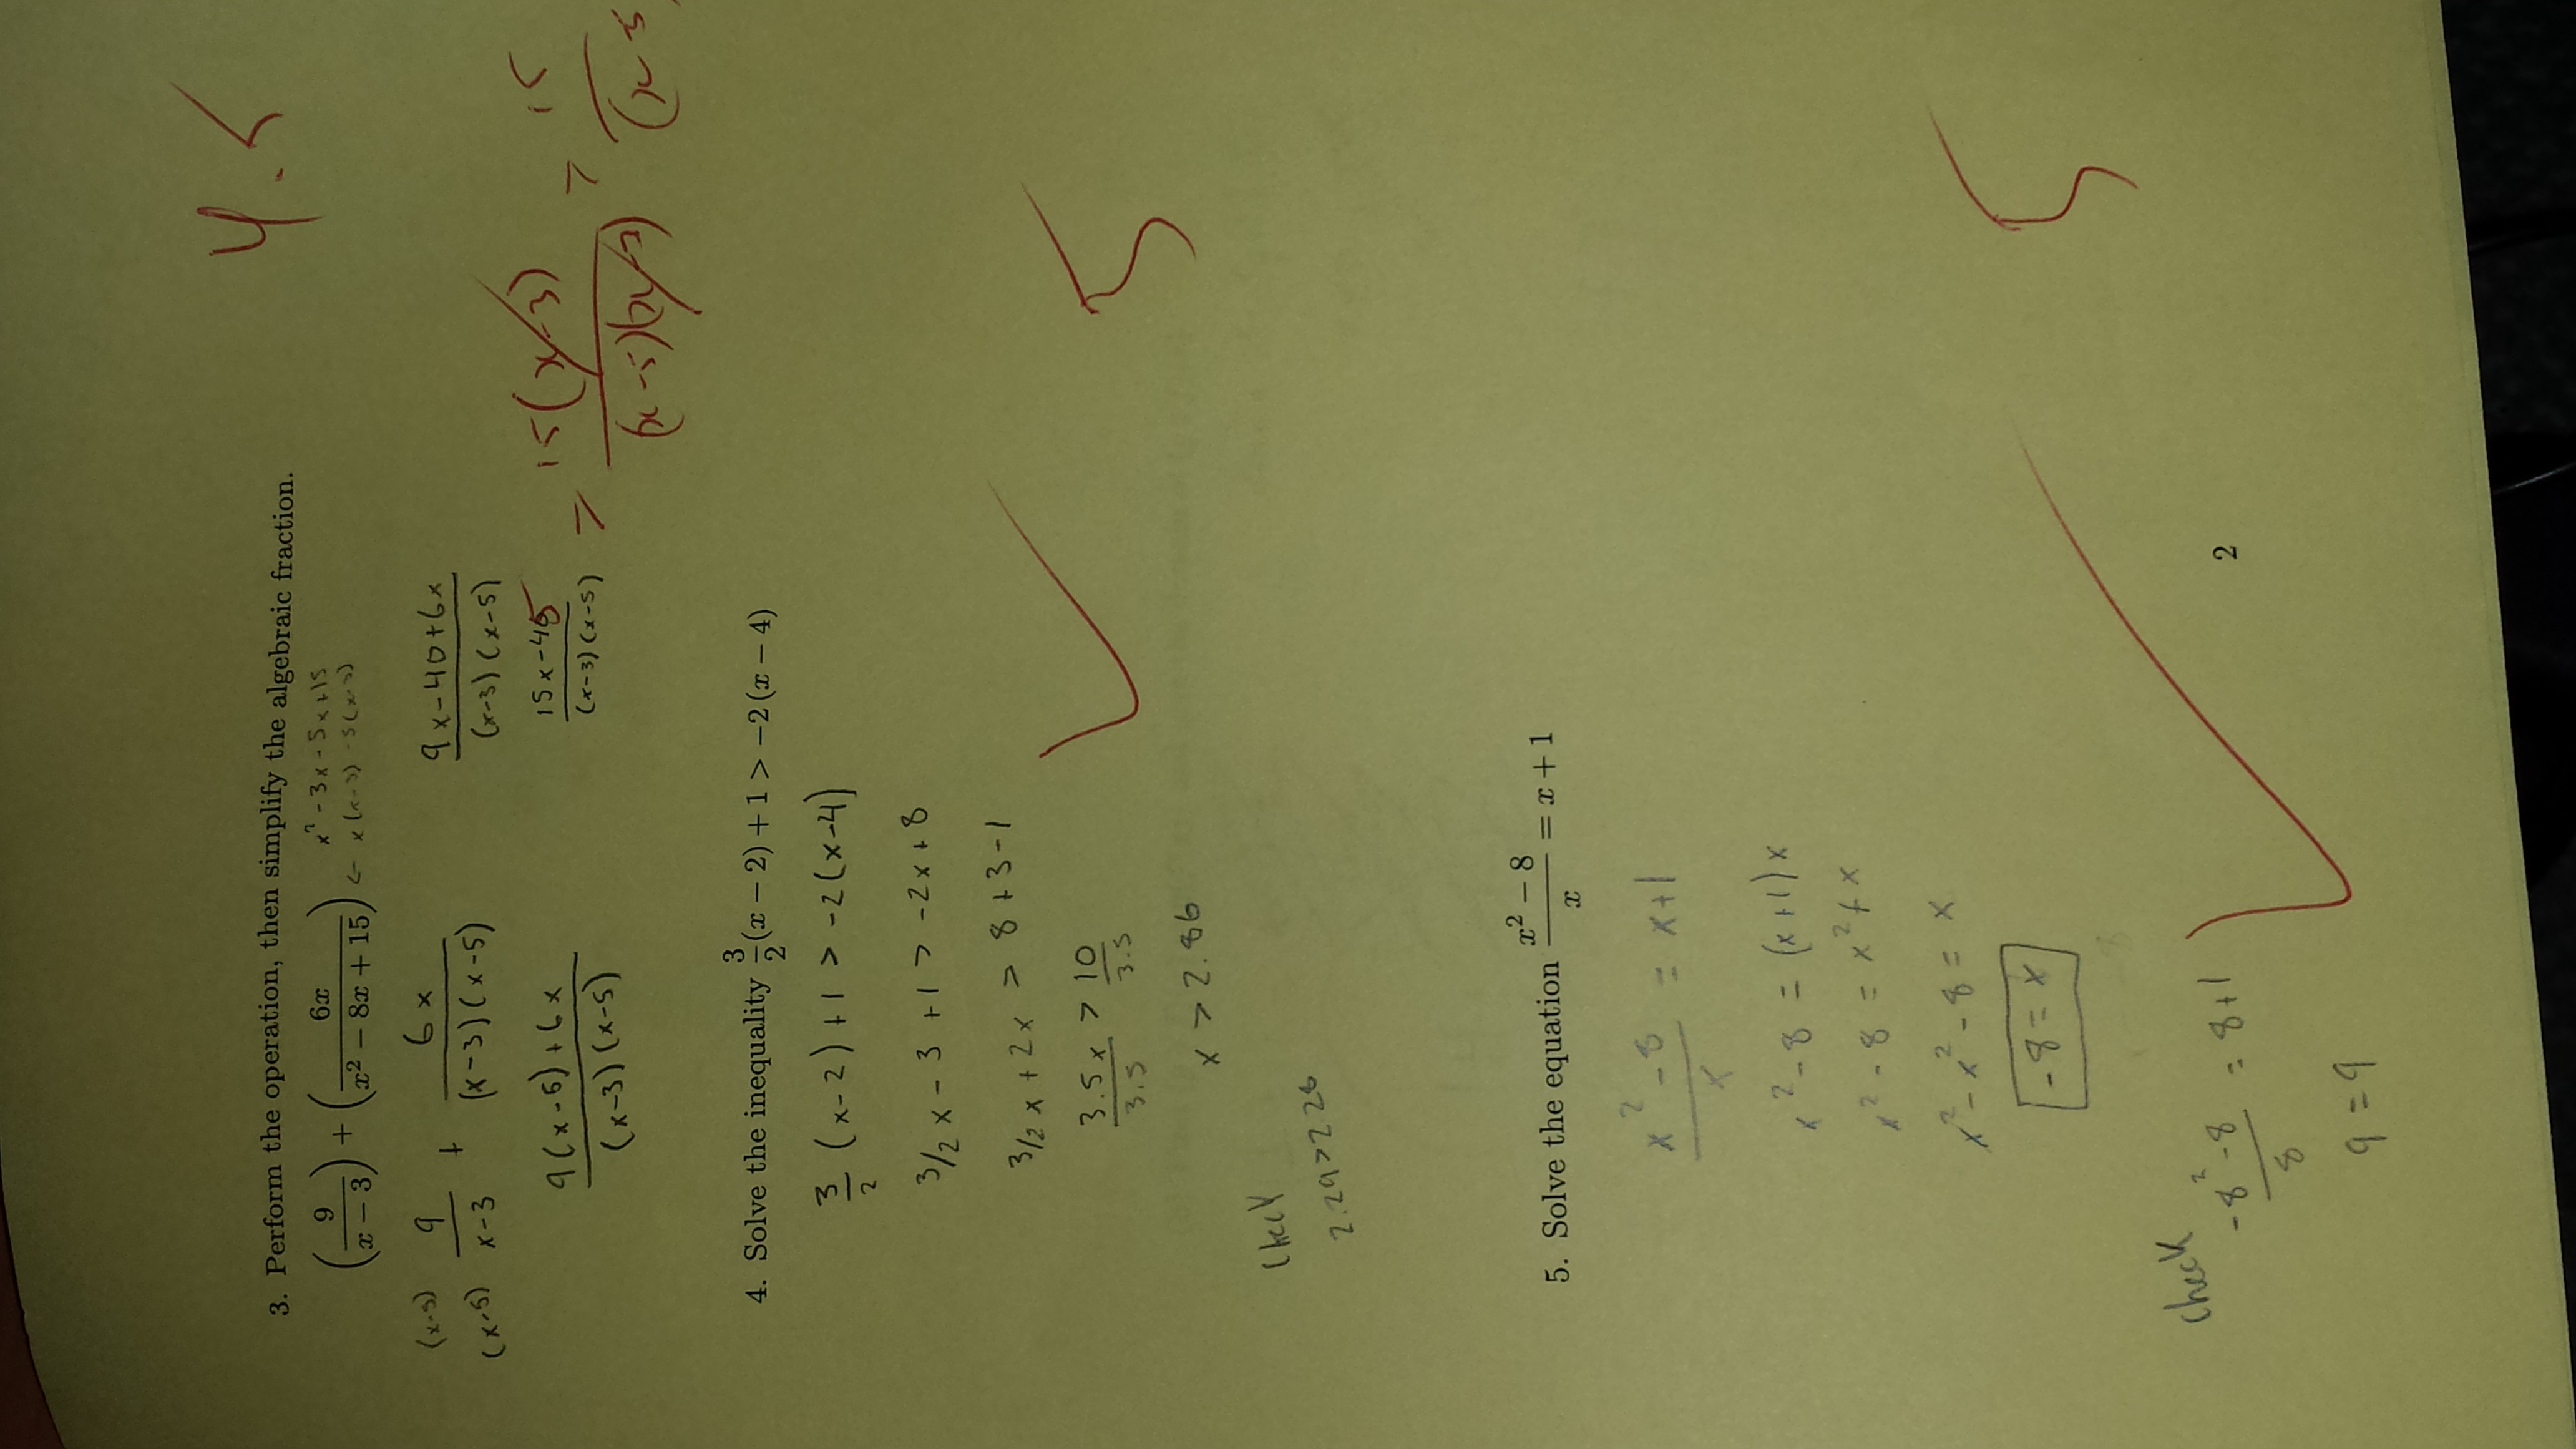 4.5
3. Perform the operation, then simplify the algebraic fraction.
(9/(x − 3)) + (6x/(x² − 8x + 15)) ← x² - 3x - 5x + 15
x(x-3) - 5(x-3)
(x-5)/(x-5) 9/(x-3) + 6x/((x-3)(x-5))
(9(x-5)+6x)/((x-3)(x-5))
(9x-40+6x)/((x-3)(x-5))
(15x-45)/((x-3)(x-5)) = 15(x-3)/((x-5)(x-3)) = 15/(x-5
4. Solve the inequality 3/2(x − 2) + 1 > −2(x − 4)
3/2 (x-2)+1 > -2(x-4)
3/2 x - 3 + 1 > -2x + 8
3/2 x + 2x > 8 + 3 - 1
3.5x/3.5 > 10/3.5
x > 2.86
check
5
5. Solve the equation (x² − 8)/x = x + 1
(x² - 8)/x = x+1
x² - 8 = (x+1)x
x² - 8 = x² + x
x² - x² - 8 = x
-8 = x
check
(-8² - 8)/8 = 8+1
9 = 9
5
2